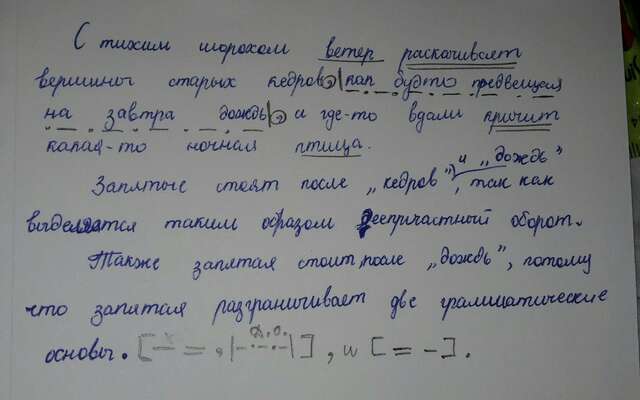 С тихим шорохом ветер раскачивает
вершины старых кедров, как будто предвещая
на завтра дождь, и где-то вдали кричит
какая-то ночная птица.
Запятые стоят после „кедров" и „дождь", так как
выделяется таким образом деепричастный оборот.
Также запятая стоит после „дождь", потому
что запятая разграничивает две грамматические
основы. [– =, |д.о.|], и [= –].